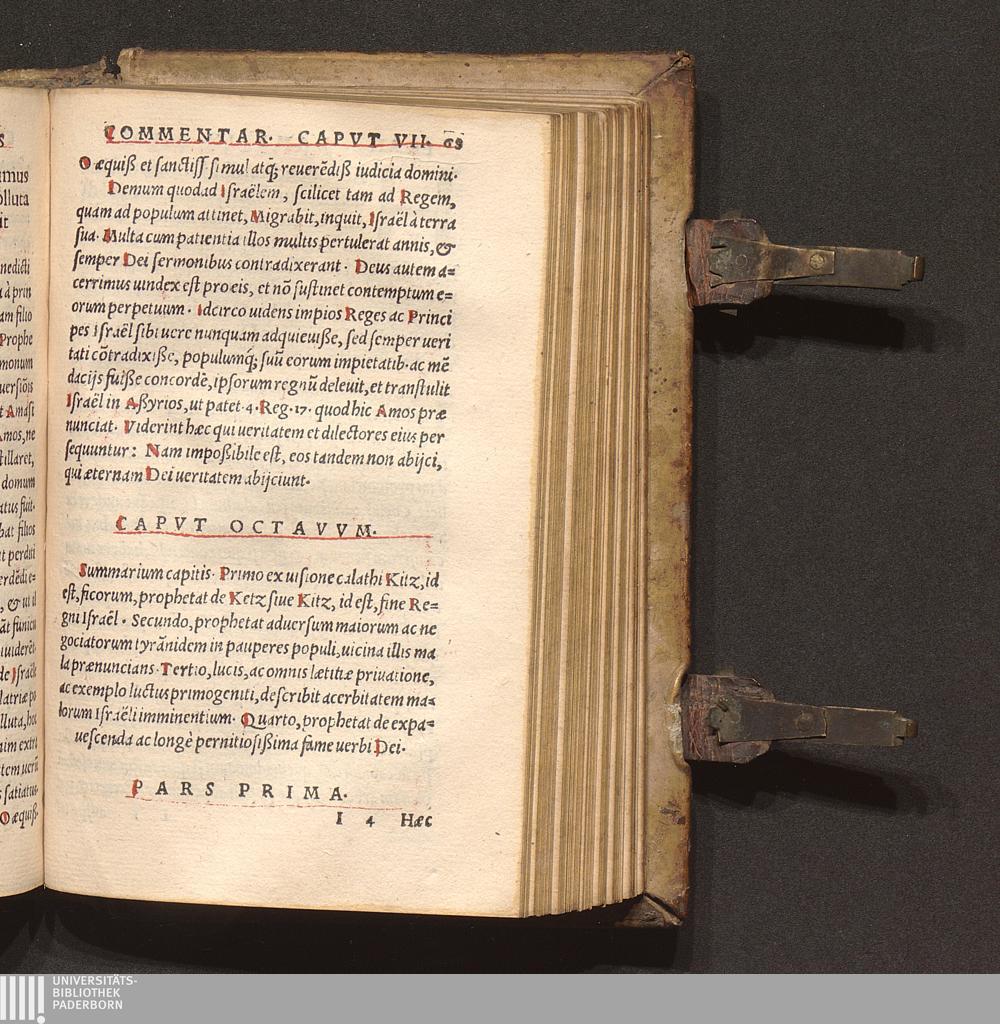 COMMENTAR. CAPVT VII. 68
O æquiß et sanctiss. simul atq; reuerēdiß iudicia domini.
Demum quod ad Israëlem, scilicet tam ad Regem,
quam ad populum attinet, Migrabit, inquit, Israël à terra
sua. Multa cum patientia illos multis pertulerat annis, &
semper Dei sermonibus contradixerant. Deus autem a=
cerrimus uindex est pro eis, et nō sustinet contemptum e=
orum perpetuum. Idcirco uidens impios Reges ac Princi
pes Israël sibi uere nunquam adquieuiße, sed semper ueri
tati cōtradixiße, populumq; suū eorum impietatib. ac mē
dacijs fuiße concordē, ipsorum regnū deleuit, et transtulit
Israël in Aßyrios, ut patet 4. Reg. 17. quod hic Amos præ
nunciat. Viderint hæc qui ueritatem et dilectores eius per
sequuntur: Nam impoßibile est, eos tandem non abijci,
qui æternam Dei ueritatem abijciunt.
CAPVT OCTAVVM.
Summarium capitis. Primo ex uisione calathi Kitz, id
est, ficorum, prophetat de Ketz siue Kitz, id est, fine Re=
gni Israël. Secundo, prophetat aduersum maiorum ac ne
gociatorum tyrānidem in pauperes populi, uicina illis ma
la prænuncians. Tertio, lucis, ac omnis lætitiæ priuatione,
ac exemplo luctus primogeniti, describit acerbitatem ma=
lorum Israëli imminentium. Quarto, prophetat de expa=
uescenda ac longè pernitiosißima fame uerbi Dei.
PARS PRIMA.
I 4 Hæc
UNIVERSITÄTS-
BIBLIOTHEK
PADERBORN